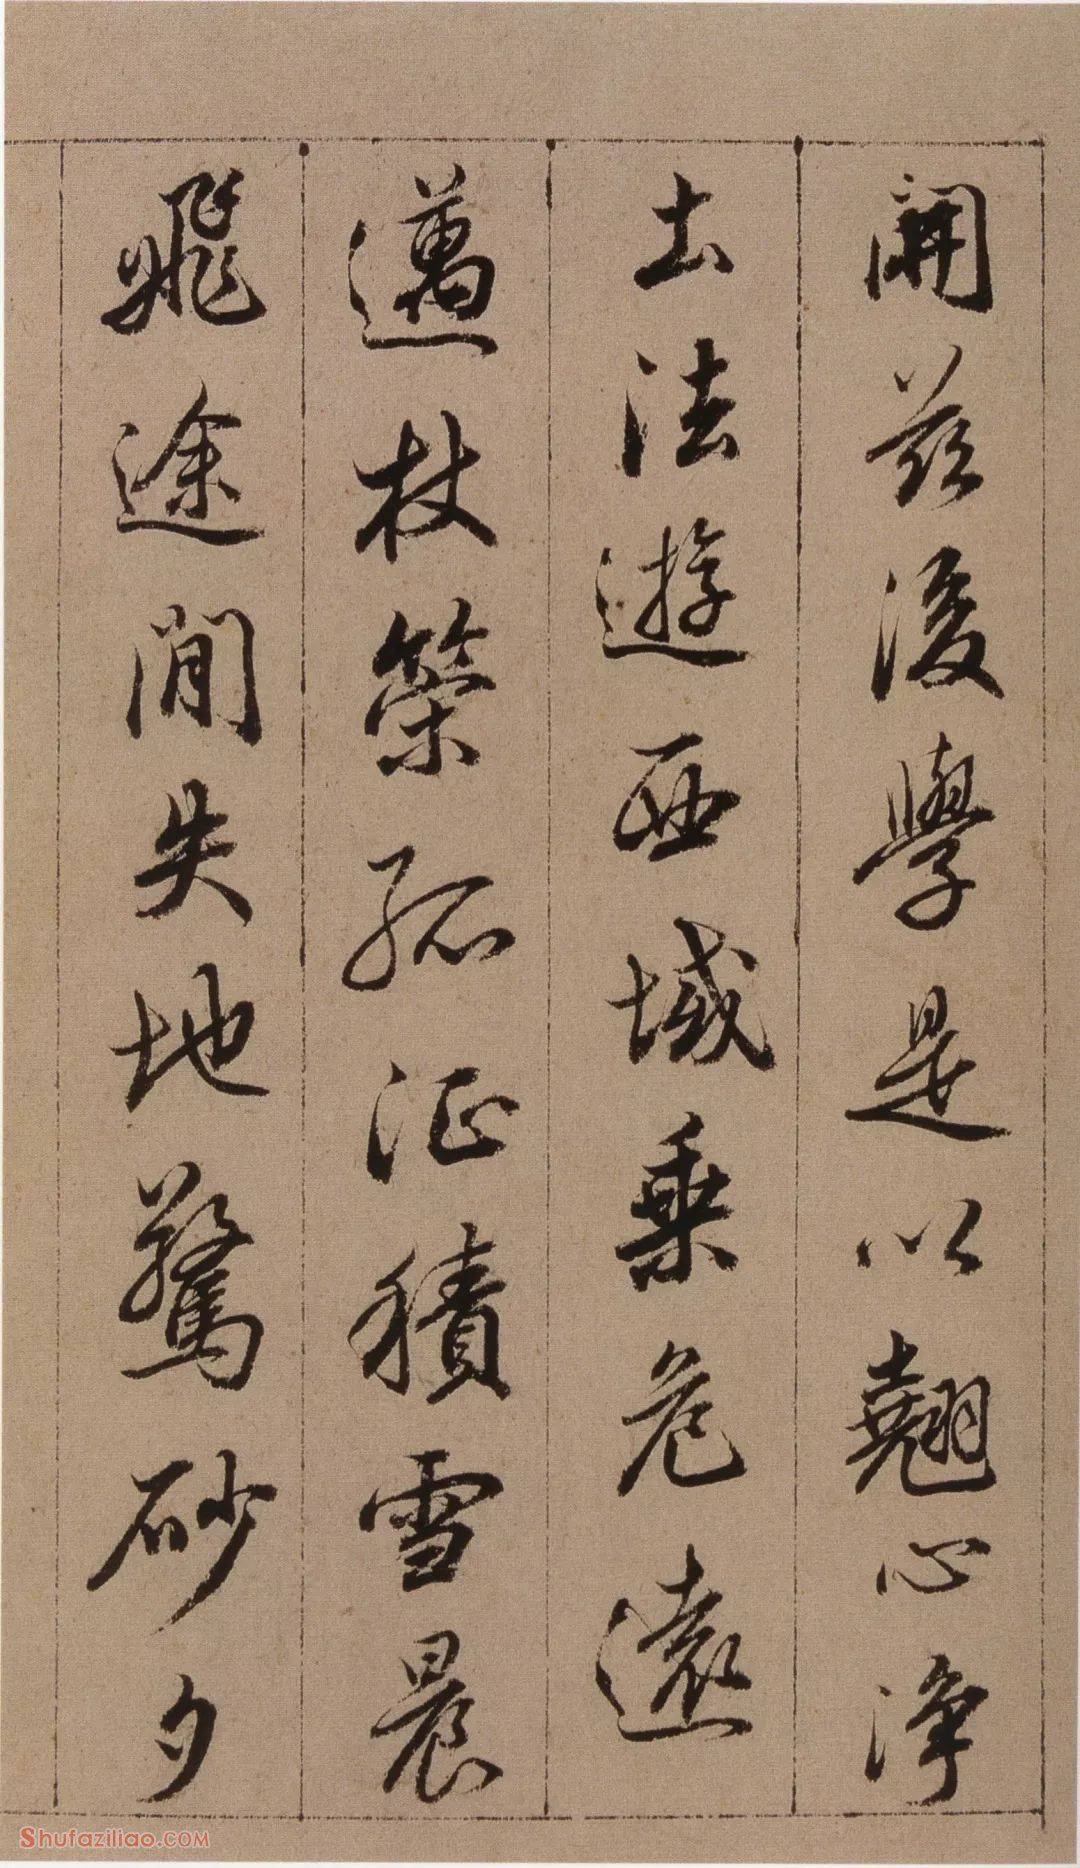 開茲後學是以翹心淨
土法遊西域乗危遠
邁杖策孤征積雪晨
飛途間失地驚砂夕
Shufaziliao.COM